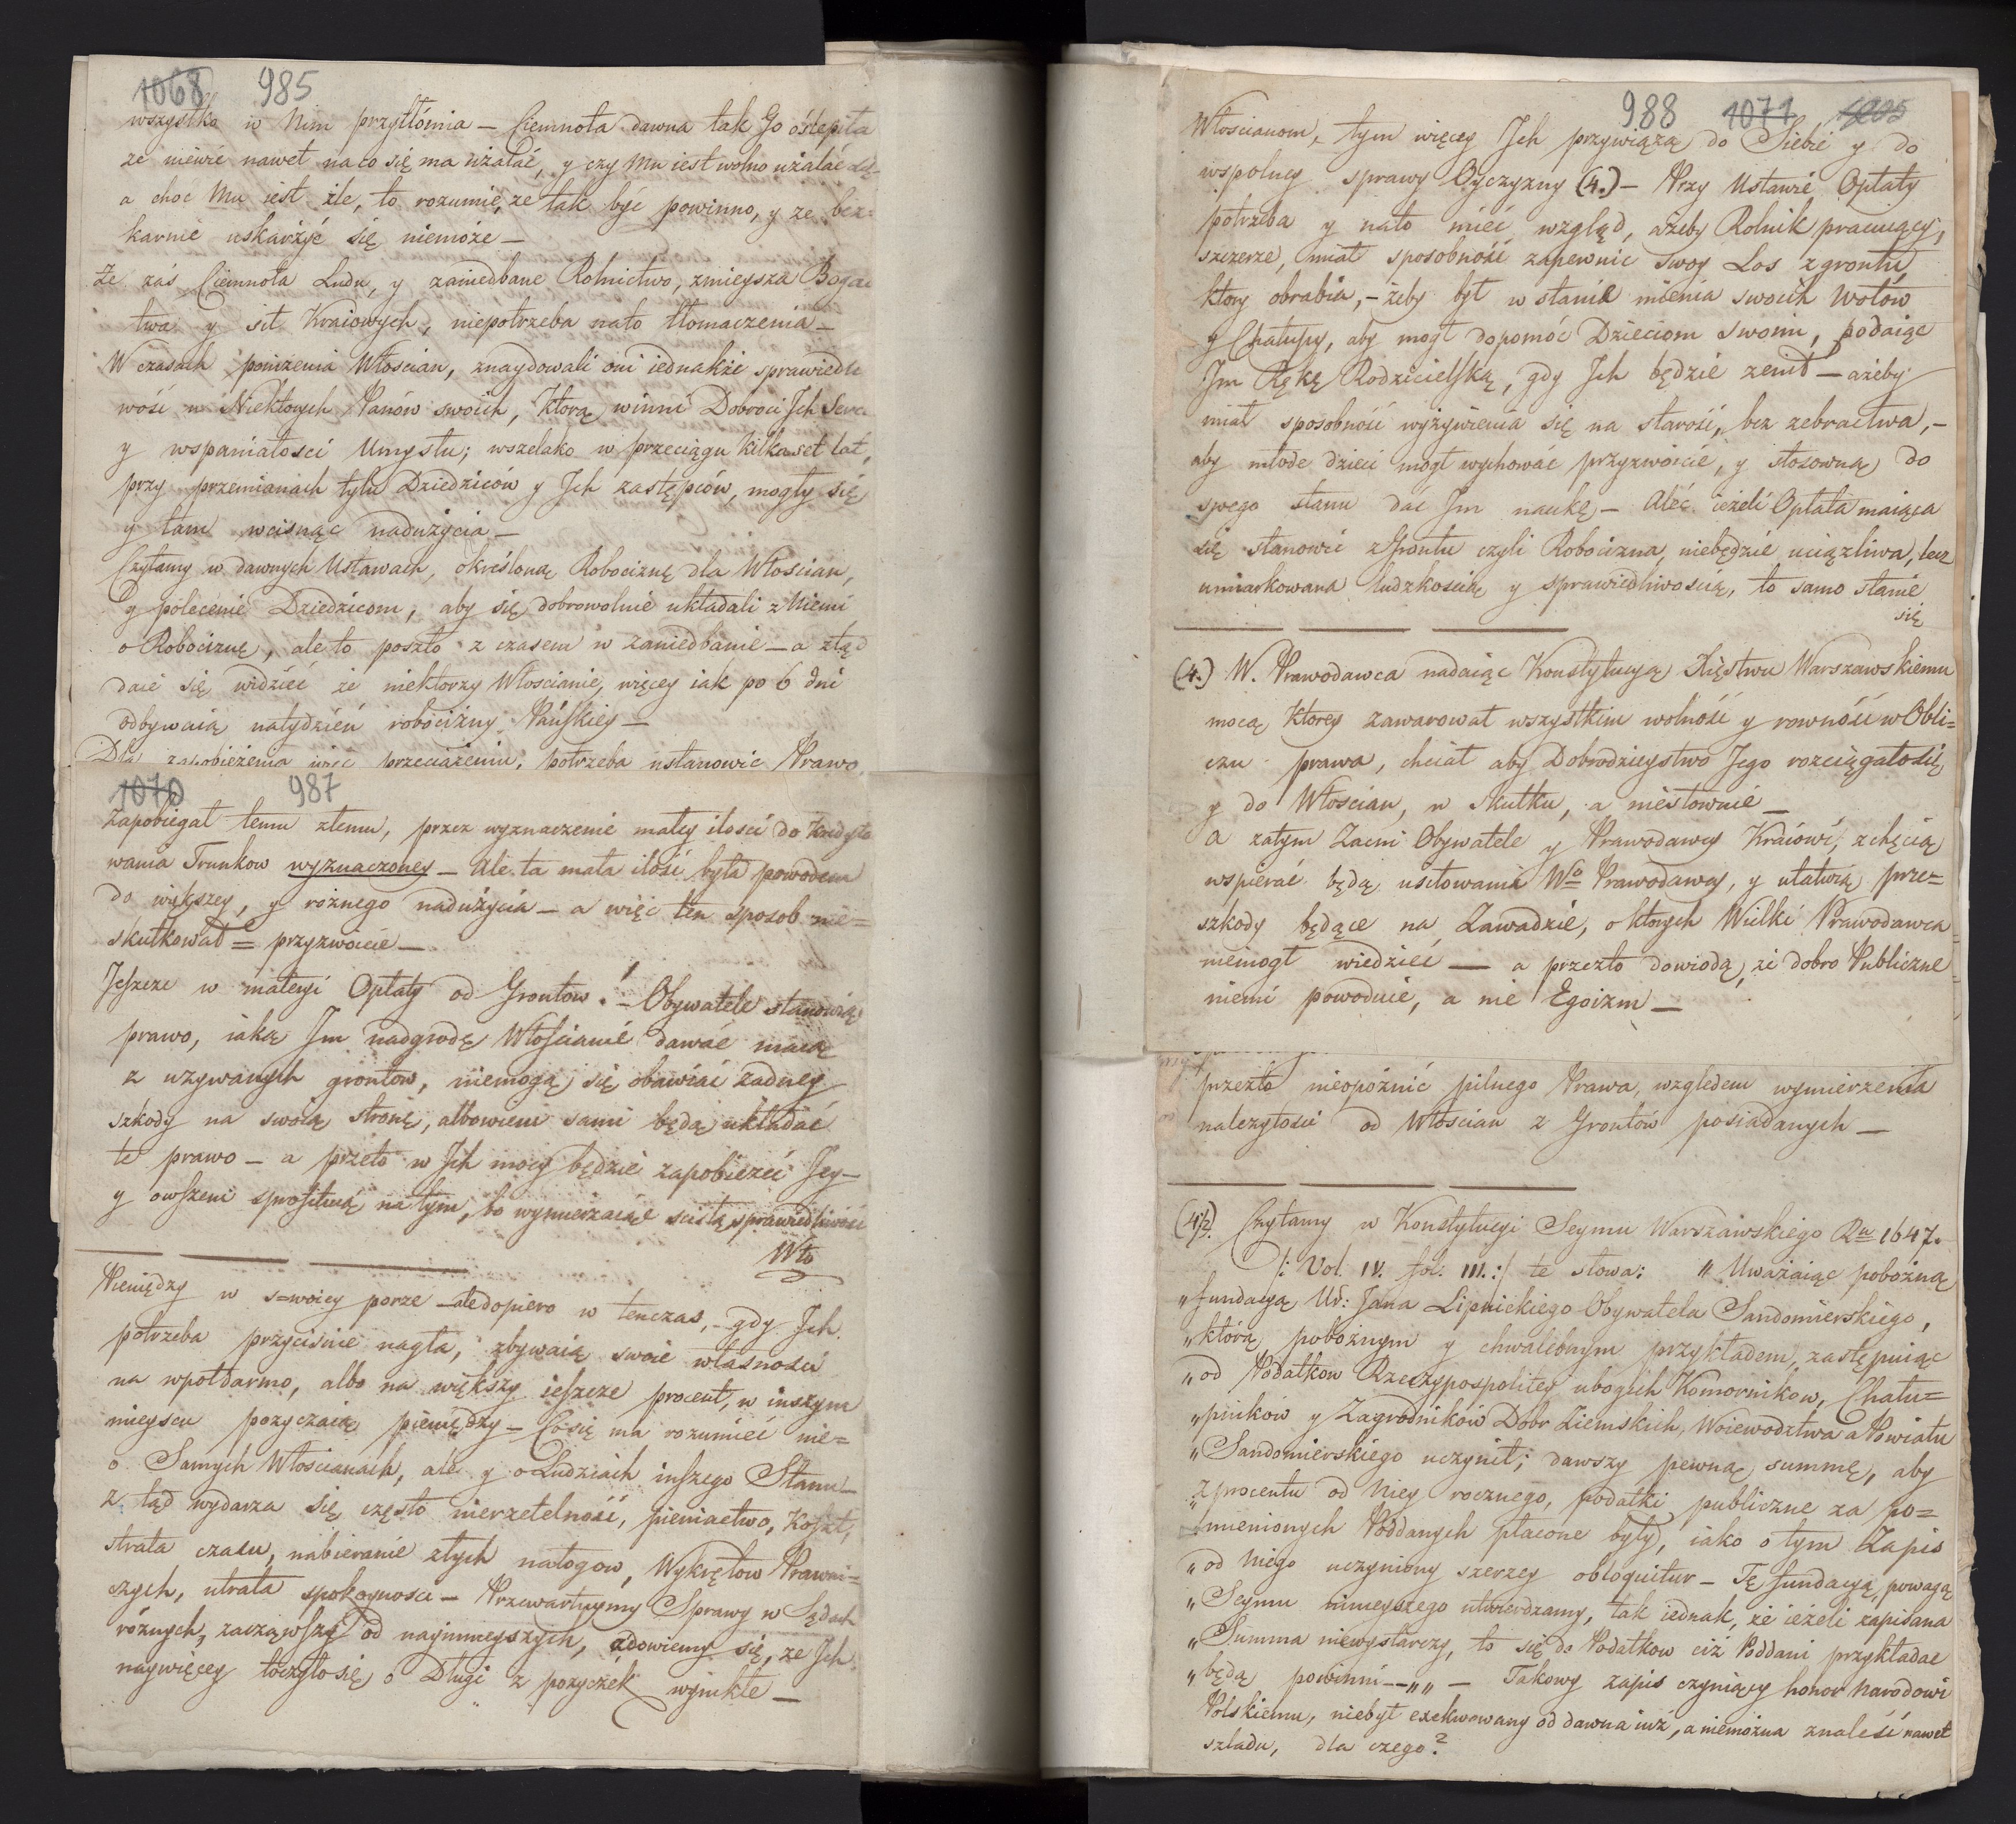 1068 985
wszystko w Nim przytłómia – Ciemnota dawna tak Go oślepiła
że niewie nawet na co się ma użalać, y czy Mu iest wolno użalać się
a choc Mu iest źle, to rozumie, że tak być powinno, y ze bez=
karnie uskarżyć się niemoże –
Że zaś Ciemnota Ludu, y zaniedbane Rolnictwo, zmieysza Bogac
twa y sił Kraiowych, niepotrzeba nato tłomaczenia –
W czasach poniżenia Włoscian, znaydowali oni iednakże sprawiedli
wość w Niektorych Panów swoich, ktorą winni Dobroci Jch Serc
y wspaniałosci Umysłu; wszelako w przeciągu kilkaset lat,
przy przemianach tylu Dziedziców y Jch zastępców, mogły się
y tam wcisnąc nadużycia –
Czytamy w dawnych Ustawach, określoną Robociznę dla Włoscian,
y polecenie Dziedzicom, aby się dobrowolnie układali z Niemi
o Robociznę, ale to poszło z czasem w zaniedbanie – a ztąd
daie się widzieć że niektorzy Włoscianie, więcey iak po 6 dni
odbywaią natydzień robocizny Pańskiey –
Dla zapobieżenia więc przeciążeniu, potrzeba ustanowic Prawo
1070 987
Zapobiegał temu złemu, przez wyznaczenie małey ilosci do kredyto
wania Trunkow wyznaczoney – Ale ta mała ilość była powodem
do większey, y rożnego nadużycia – a więc ten sposob nie=
skutkował = przyzwoicie –
Jeszcze w materyi Opłaty od Grontow. – Obywatele stanowiąc
prawo, iaką Jm nadgrodę Włoscianie dawać maią
z uzywanych grontow, niemogą się obawiać żadney
szkody na swoią stronę, albowiem sami będą układać
te prawo – a przeto w Jch mocy będzie zapobieżeć Jey –
y owszem na tym, bo wymierzaiąc scisłą sprawiedliwość
Wło
Pieniędzy w s=woiey porze – aledopiero w tenczas, – gdy Jch
potrzeba przyciśnie nagła, zbywaią swoie własnosci
na wpołdarmo, albo na większy ieszcze procent, w inszym
mieyscu pozyczaią pieniędzy – Co się ma rozumieć nie=
o Samych Włoscianach, ale y o Ludziach inszego Stanu –
z tąd wydarza się często nierzetelność, pieniactwo, Koszt,
strata czasu, nabieranie złych nałogow, Wykrętow Prawni=
czych, utrata spokoynosci – Przewartuymy Sprawy w Sądach
różnych, zacząwszy od naymnieyszych, a dowiemy się, ze Jch
naywięcey toczyło się o Długi z pozyczek wynikłe –
988 1071
Włoscianom, – tym więcey Jch przywiążą do Siebie y do
wspolney sprawy Oyczyzny (4.) – Przy Ustawie Opłaty
potrzeba y nato mieć wzgląd, ażeby Rolnik pracuiący,
szczerze, miał sposobność zapewnic swoy Los z grontu,
ktory obrabia, – żeby był w stanie mienia swoich Wołów
y Chałupy, aby mogł dopomóc Dzieciom swoim, podaiąc
Jm Rękę Rodzicielską, gdy Jch będzie zenił – ażeby
miał sposobność wyżywienia się na starość, bez zebractwa, –
aby młode dzieci mogł wychować przyzwoicie, y stosowną do
swego stanu dać Jm naukę – Aleć ieżeli Opłata maiąca
się stanowić z Grontu czyli Robocizna, niebędzie uciążliwa, lecz
umiarkowana ludzkoscią y sprawiedliwoscią, to samo stanie
się
(4.) W. Prawodawca nadaiąc Konstytucyą Xięstwu Warszawskiemu
mocą ktorey zawarował wszystkim wolność y rowność w Obli=
czu prawa, chciał aby Dobrodzieystwo Jego rozciągałosię
y do Włoscian, w skutku, a niesłownie –
a zatym Zacni Obywatele y Prawodawcy Kraiowi, z chęcią
wspierać będą usiłowania Wo Prawodawcy, y ułatwią prze=
szkody będące na Zawadzie, o ktorych Wielki Prawodawca
niemogł wiedzieć – a przezto dowiodą, że dobro Publiczne
niemi powoduie, a nie Egoizm –
przezto nieopóźnić pilnego Prawa, względem wymierzenia
nalezytosci od Włoscian z Grontów posiadanych –
(4½.) Czytamy w Konstytucyi Seymu Warszawskiego Ru 1647.
/: Vol. IV. fol: III. :/ te słowa: „Uważaiąc pobożną
„fundacyą Ur: Jana Lipnickiego Obywatela Sandomierskiego,
„którą pobożnym y chwalebnym przykładem, zastępuiąc
„od Podatkow Rzeczypospolitey ubogich Komornikow, Chału=
„pników y Zagrodników Dobr Ziemskich, Woiewodztwa a Powiatu
„Sandomierskiego uczynił; dawszy pewną summę, aby
„z procentu od Niey rocznego, podatki publiczne za po=
„mienionych Poddanych płacone były, iako o tym Zapis
„od Niego uczyniony szerzey obloquitur – Tę fundacyą, powagą
„Seymu ninieyszego utwierdzamy, tak iednak, że ieżeli zapisana
„Summa niewystarczy, to się do Podatkow ciż Poddani przykładac
„będą powinni – – „ „ – Takowy zapis czyniący honor Narodowi
Polskiemu, niebył exekwowany od dawna iuż, a niemożna znaleść nawet
szladu, dla czego?